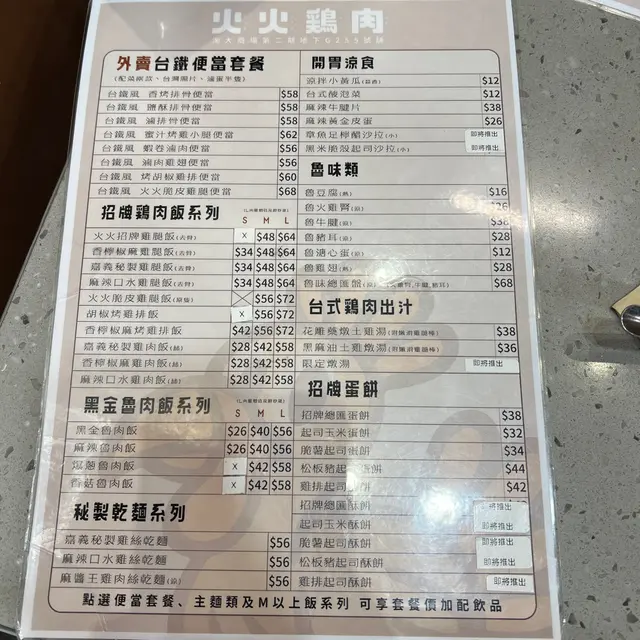 火火鷄肉
外賣台鐵便當套餐
台鐵風 香烤排骨便當 $58
台鐵風 鹽酥排骨便當 $58
台鐵風 滷排骨便當 $58
台鐵風 蜜汁烤雞小腿便當 $62
台鐵風 蝦卷滷肉便當 $56
台鐵風 滷肉雞翅便當 $56
台鐵風 烤胡椒雞排便當 $60
台鐵風 火火脆皮雞腿便當 $68
招牌鷄肉飯系列
S M L
火火招牌雞腿飯(去骨) X $48 $64
香檸椒麻雞腿飯(去骨) $34 $48 $64
嘉義秘製雞腿飯(去骨) $34 $48 $64
麻辣口水雞腿飯(去骨) $34 $48 $64
火火脆皮雞腿飯 $56 $72
胡椒烤雞排飯 X $56 $72
香檸椒麻烤雞排飯 $42 $56 $72
嘉義秘製雞肉飯 $28 $42 $58
香檸椒麻雞肉飯 $28 $42 $58
麻辣口水雞肉飯 $28 $42 $58
黑金魯肉飯系列
S M L
黑金魯肉飯 $26 $40 $56
麻辣魯肉飯 $26 $40 $56
爆蔥魯肉飯 X $42 $58
香菇魯肉飯 X $42 $58
秘製乾麵系列
嘉義秘製雞絲乾麵 $56
麻辣口水雞絲乾麵 $56
麻醬王雞肉絲乾麵(涼) $56
開胃涼食
涼拌小黃瓜 $12
台式酸泡菜 $12
麻辣牛腱片 $38
麻辣黃金皮蛋 $26
章魚足檸醋沙拉(小) 即將推出
黑米脆殼起司沙拉(小) 即將推出
魯味類
魯豆腐(熱) $16
魯火雞腎(涼)
魯牛腱(涼) $38
魯豬耳(涼) $28
魯溏心蛋(涼) $12
魯雞翅(熱) $28
魯味總匯盤 $68
台式鷄肉出汁
花雕藥燉土雞湯 $38
黑麻油土雞燉湯 $36
限定燉湯 即將推出
招牌蛋餅
招牌總匯蛋餅 $38
起司玉米蛋餅 $32
脆薯起司蛋餅 $34
松板豬起司蛋餅 $44
雞排起司蛋餅 $42
招牌總匯酥餅 即將推出
起司玉米酥餅 即將推出
脆薯起司酥餅 即將推出
松板豬起司酥餅 即將推出
雞排起司酥餅 即將推出
點選便當套餐、主麵類及M以上飯系列 可享套餐價加配飲品